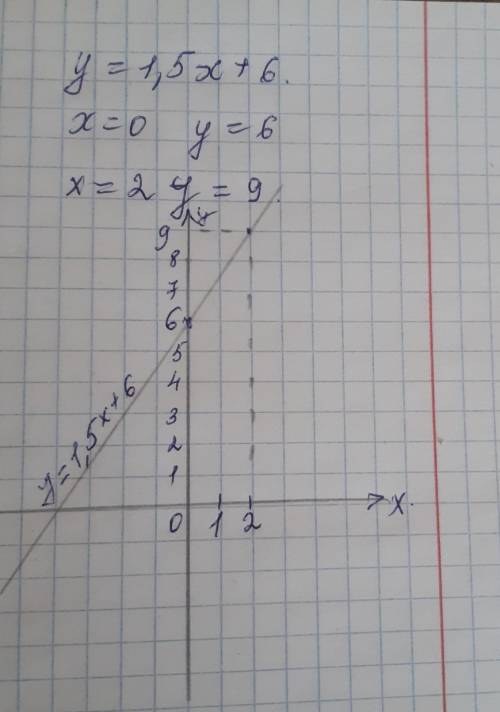 y = 1,5x + 6.
x = 0 y = 6
x = 2 y = 9.
y
9
8
7
6
5
4
3
2
1
y = 1,5x + 6
0 1 2 x